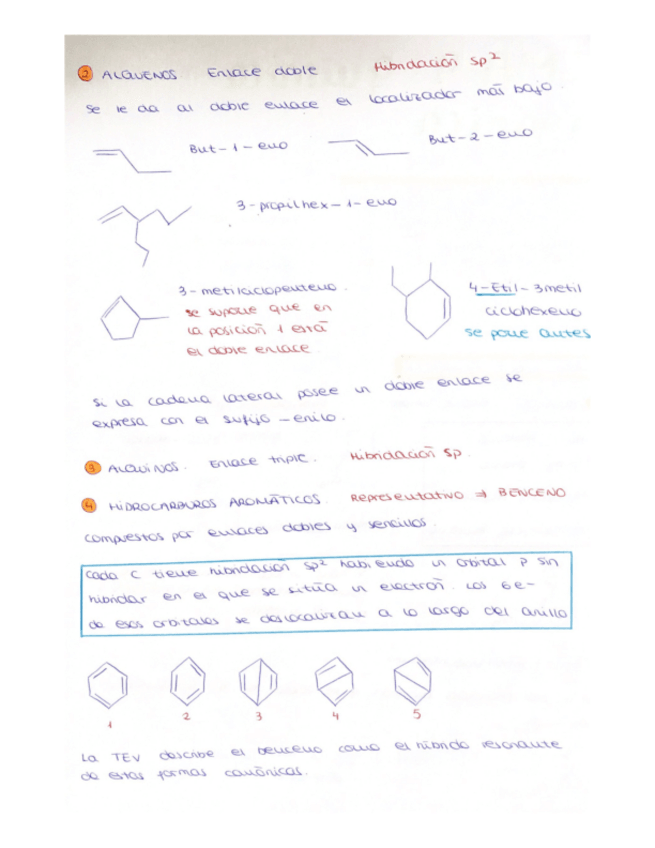 2 ALQUENOS. Enlace doble Hibridación sp²
se le da al doble enlace el localizador más bajo.
But-1-eno
But-2-eno
3-propilhex-1-eno
3-metilciclopenteno.
se supone que en
la posición 1 está
el doble enlace
4-Etil-3metil
ciclohexeno
se pone antes
Si la cadena lateral posee un doble enlace se
expresa con el sufijo -enilo.
3 ALQUINOS. Enlace triple. Hibridación sp.
4 HIDROCARBUROS AROMÁTICOS. Representativo ⇒ BENCENO
compuestos por enlaces dobles y sencillos.
Cada C tiene hibridación sp² habiendo un orbital p sin
hibridar en el que se sitúa un electrón. Los 6e-
de esos orbitales se deslocalizan a lo largo del anillo
1 2 3 4 5
La TEV describe el benceno como el híbrido resonante
de estas formas canónicas.